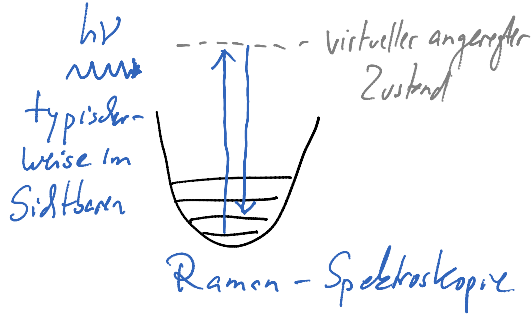 hν
typischer-
weise im
Sichtbaren
- virtueller angeregter
Zustand
Raman - Spektroskopie